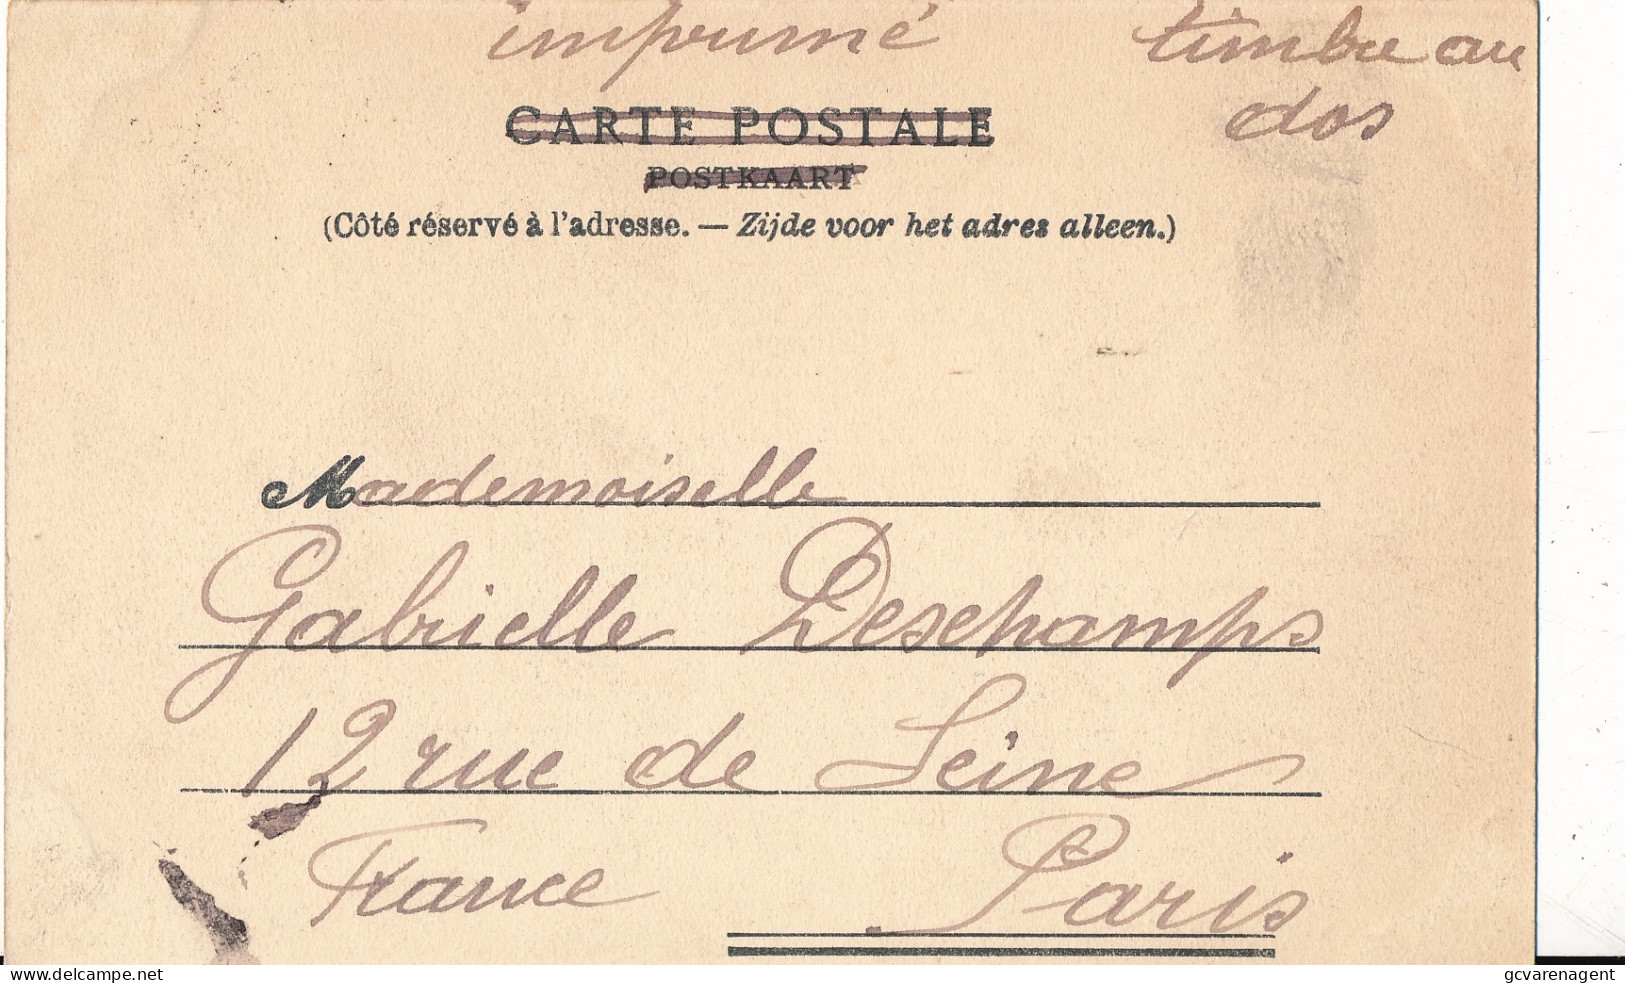 imprimé timbre au
dos
CARTE POSTALE
POSTKAART
(Côté réservé à l'adresse. — Zijde voor het adres alleen.)
Mademoiselle
Gabrielle Deschamps
12 rue de Seine
France Paris
www.delcampe.net gcvarenagent